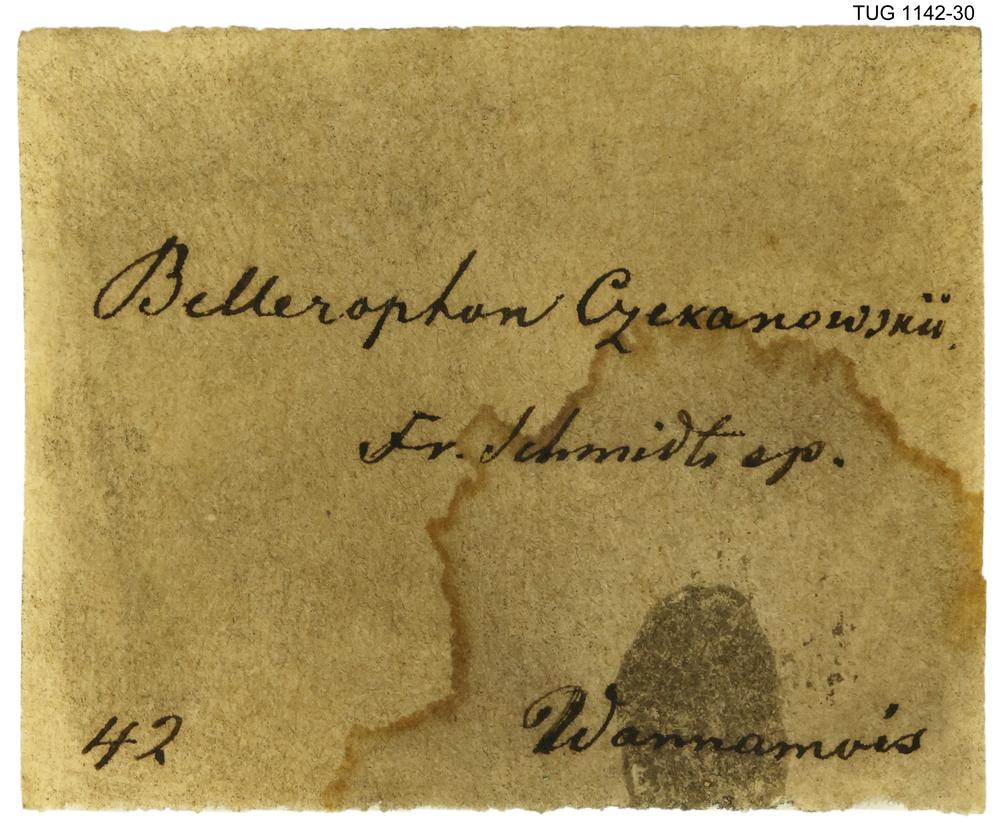 TUG 1142-30
Bellerophon Czekanowskii.
Fr. Schmidt sp.
42 Wannamois